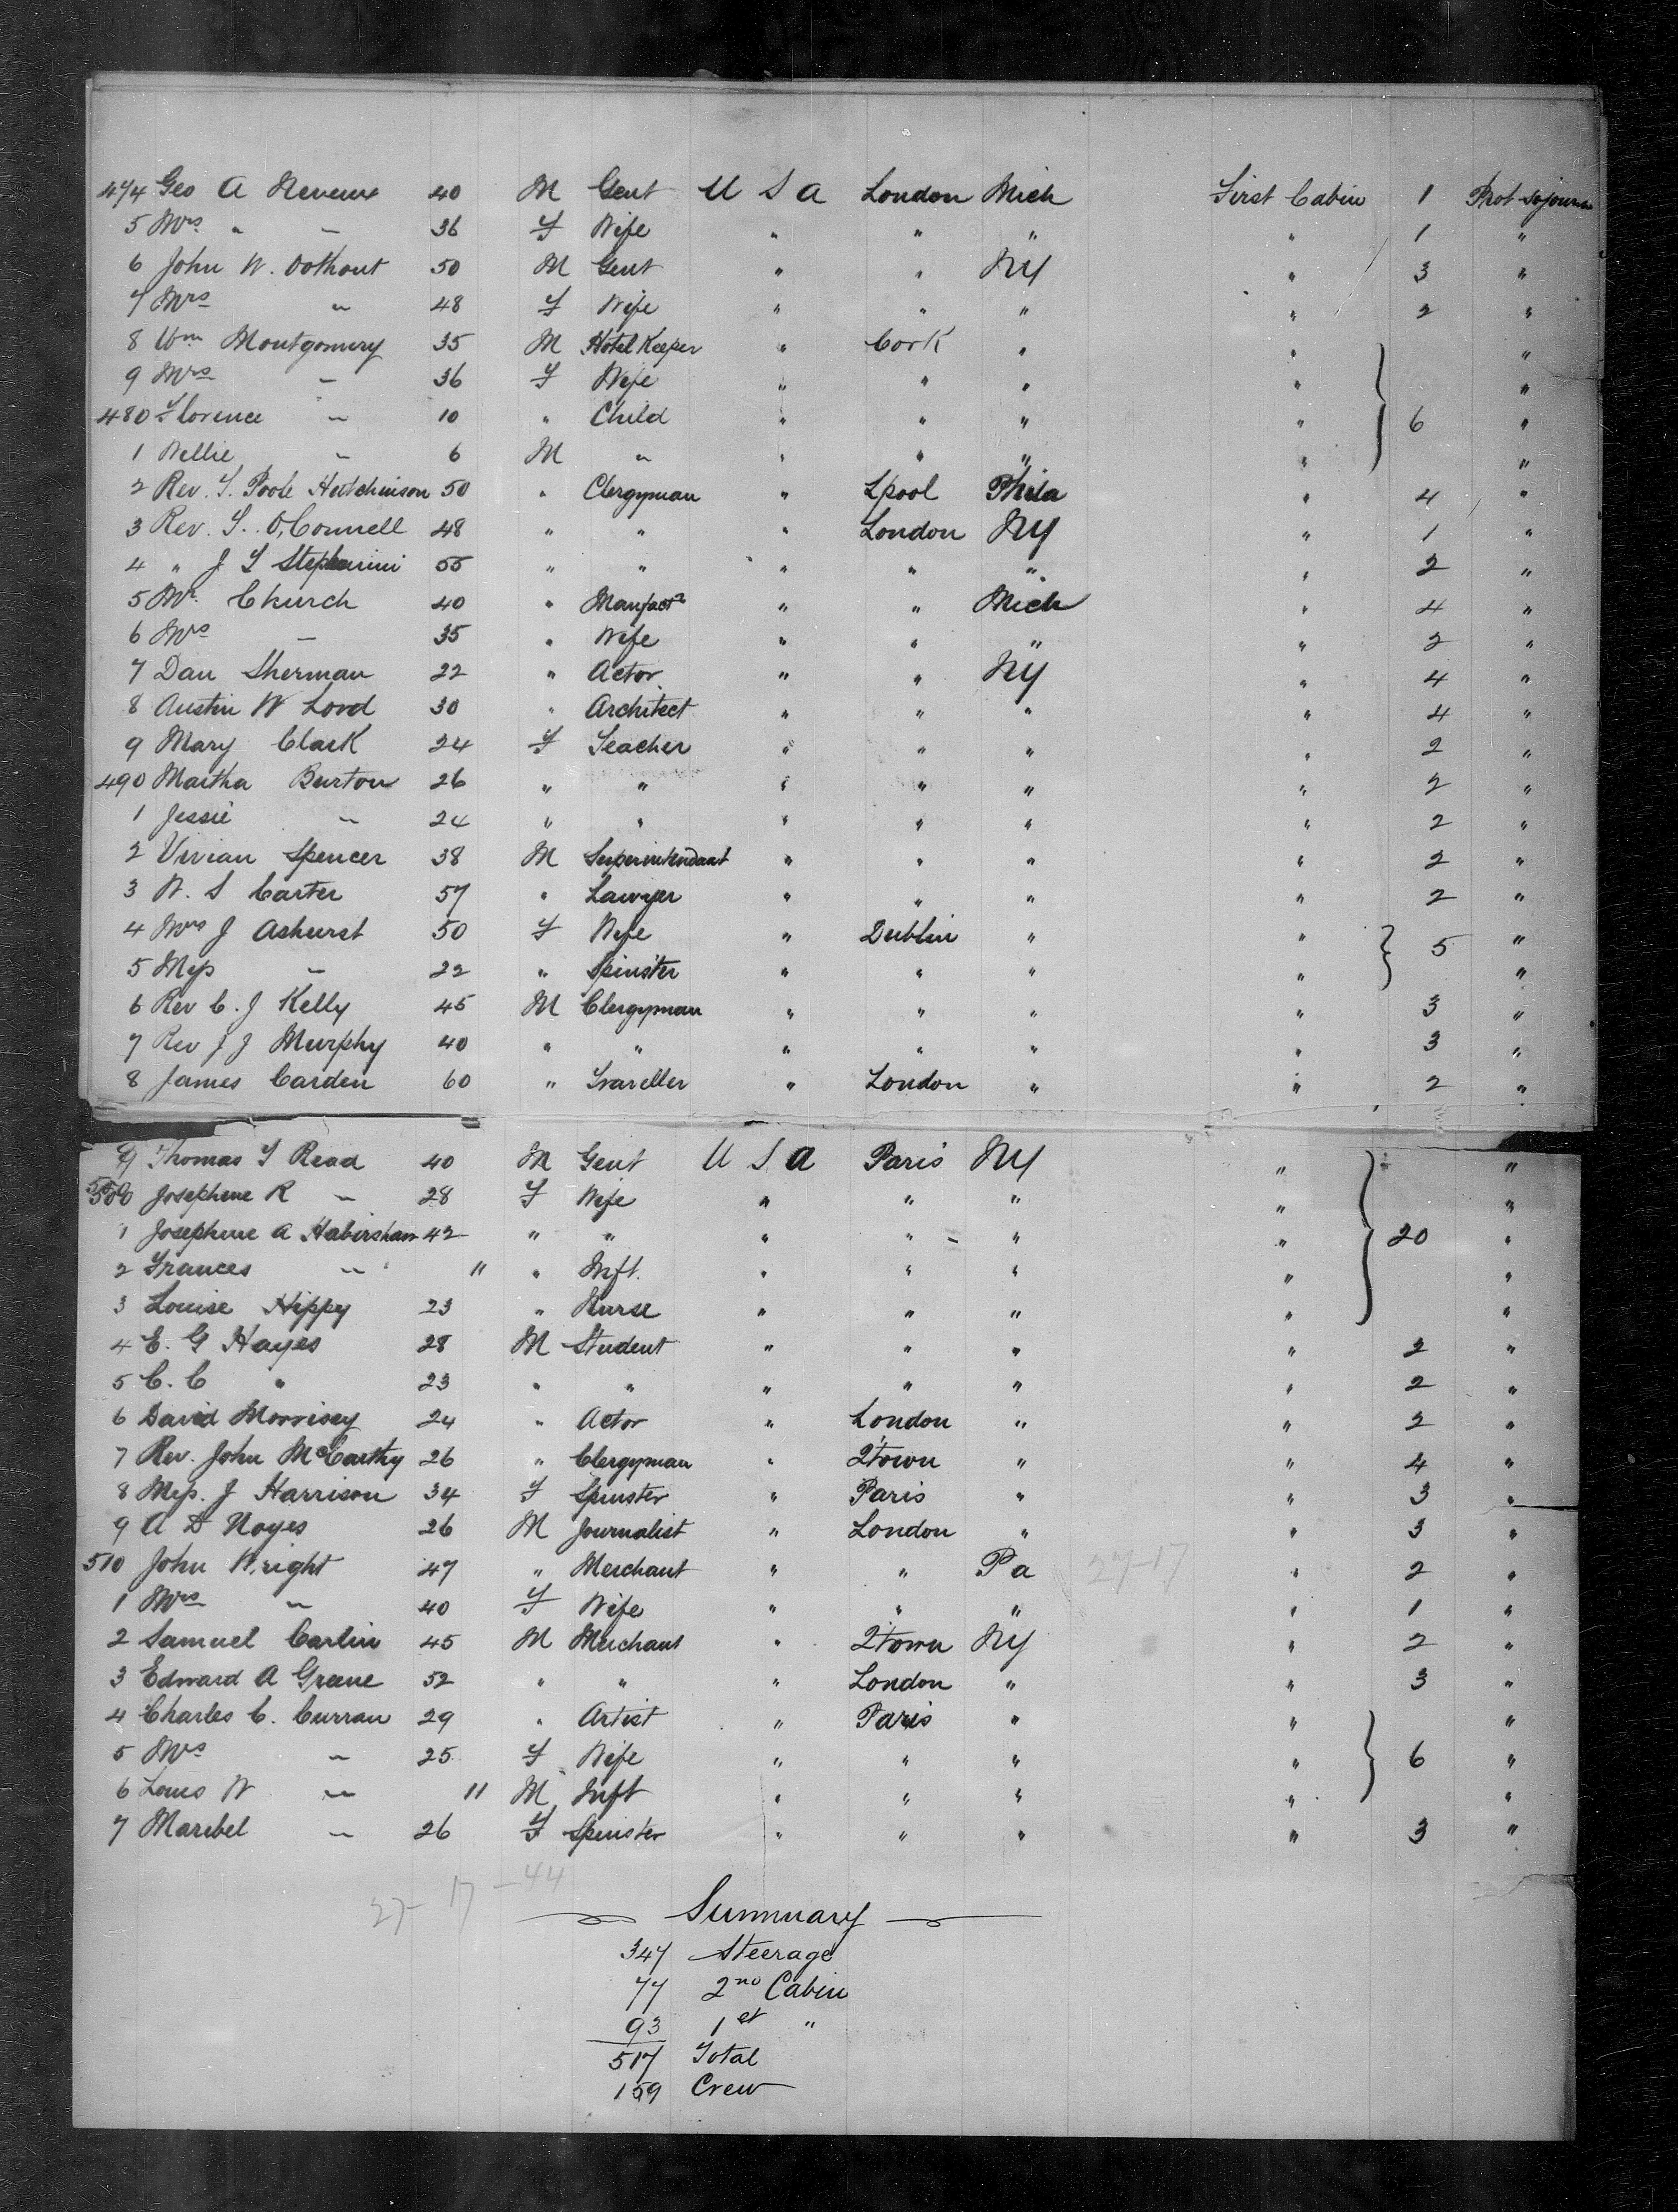 474 Geo A 40 M Gent U S A London Mich First Cabin 1 Prot Sojourn
5 Mrs " — 36 F Wife " " " " 1 "
6 John W. Oothout 50 M Gent " " NY " 3 "
7 Mrs — 48 F Wife " " " " 2 "
8 Wm Montgomery 35 M Hotel Keeper " Cork " " "
9 Mrs — 36 F Wife " " " " "
480 Florence — 10 " Child " " " " 6 "
1 Willie — 6 M " " " " " "
2 Rev. S. Poole Hutchinson 50 " Clergyman " Lpool Phila " 4 "
3 Rev. S. O'Connell 48 " " " London NY " 1 "
4 " J S 55 " " " " " " 2 "
5 Mr. Church 40 " Manfactr " " Mich " 4 "
6 Mrs — 35 " Wife " " " " 2 "
7 Dan Sherman 22 " Actor " " NY " 4 "
8 Austin W Lord 30 " Architect " " " " 4 "
9 Mary Clark 24 F Teacher " " " " 2 "
490 Martha Burton 26 " " " " " " 2 "
1 Jessie — 24 " " " " " " 2 "
2 Vivian Spencer 38 M Superintendant " " " " 2 "
3 W. S Carter 57 " Lawyer " " " " 2 "
4 Mrs J Ashurst 50 F Wife " Dublin " " 5 "
5 Miss — 22 " Spinster " " " " "
6 Rev C. J Kelly 45 M Clergyman " " " " 3 "
7 Rev J J Murphy 40 " " " " " " 3 "
8 James Carden 60 " Traveller " London " " 2 "
9 Thomas T Read 40 M Gent U S A Paris NY " "
500 Josephine R — 28 F Wife " " " " "
1 Josephine A Habirsham 42 " " " " " " 20 "
2 Frances — 11 " Inft. " " " " "
3 Louise Hippy 23 " Nurse " " " " "
4 E. G Hayes 28 M Student " " " " 2 "
5 C. C " 23 " " " " " " 2 "
6 David Morrisey 24 " Actor " London " " 2 "
7 Rev. John McCarthy 26 " Clergyman " Qtown " " 4 "
8 Miss. J Harrison 34 F Spinster " Paris " " 3 "
9 A D Noyes 26 M Journalist " London " " 3 "
510 John Wright 47 " Merchant " " Pa 27-17 " 2 "
1 Mrs — 40 F Wife " " " " 1 "
2 Samuel Carlin 45 M Merchant " Qtown NY " 2 "
3 Edward A Greene 52 " " " London " " 3 "
4 Charles C. Curran 29 " Artist " Paris " " "
5 Mrs — 25 F Wife " " " " 6 "
6 Louis W — 11 M Inft " " " " "
7 Maribel — 26 F Spinster " " " " 3 "
27-17-44
Summary
347 Steerage
77 2nd Cabin
93 1st "
517 Total
159 Crew